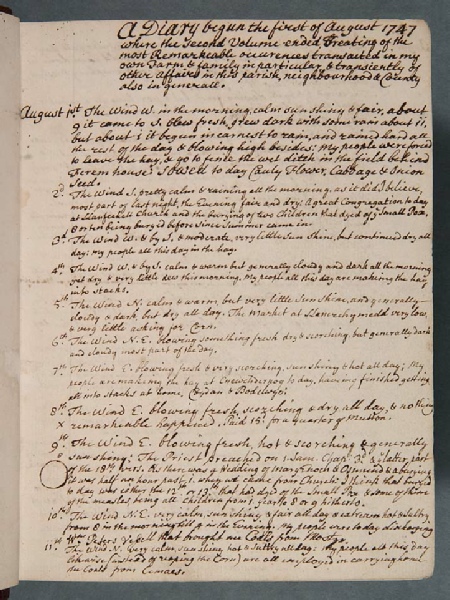 A Diary begun the first of August 1747
where the Second Volume ended Treating of the
most Remarkable occurences transacted in my
own Farm & family in particular, & transiently of
other affairs in this parish, neighbourhood & County
also in generall.
August 1st The Wind W. in the morning, calm sun shiney & fair, about
9 it came to S. blew fresh, grew dark with some rain about 11,
but about 1 it begun in earnest to rain, and rained hard all
the rest of the day & blowing high besides; my people were forced
to leave the hay, & go to fence the wet ditch in the field behind
house. I sowed to day Cauly Flower, Cabbage & Onion
Seed.
2d. The Wind S. pretty calm & raining all the morning, as it did I believe,
most part of last night, the Evening fair and dry; a great Congregation to day
at Church and the burying of two Children that dyed of ye Small Pox,
6 or 7 being buryed before since Summer came in.
3d. The Wind W. & by S. & moderate, very little Sun Shine, but continued dry all
day; my people all this day in the hay.
4th The Wind W. & by S. calm & warm but generally cloudy and dark all the morning,
yet dry & very little dew this morning. My people all this day are making the hay
into stacks.
5th The Wind N. calm & warm, but very little Sun shine, and generally
cloudy & dark, but dry all day. The market at Llanerchymedd very low,
& very little asking for Corn.
6th The Wind N.E. blowing something fresh dry & scorching but generally dark
and cloudy most part of the day.
7th The Wind E. blowing fresh & very scorching, sun shining & hot all day; My
people are making the hay at to day, having finished getting
all into stacks at home, & Bodelwyn.
8th The Wind E. blowing fresh, scorching & dry all day, & nothing
x remarkable happened. Paid 15d for a quarter of Mutton.
9th The Wind E. blowing fresh, hot & scorching & generally
sun shiny; The Priest preached on 1 Sam. Chap. 3. & latter part
of the 18th vers. As there was a Wedding of & & a burying
it was half an hour past when we came from Church: The that buryed
to day was either the 12th or 13th that had dyed of the Small Pox & some of them
the measles being all Children from 1 year to 8 or 9 thereto.
10th The Wind N.E. very calm, sun shining & fair all day & extreem hot & sultry
from 8 in the morning till 4 in the Evening. My people were to day discharging
Wm. Peters Vessell that brought me Coals from Mostyn.
11th The Wind N. very calm, sun shining hot & sultry all day: My people all this day
likewise (instead of reaping the Corn) are all employed in carrying home
the Coals from Cemaes.